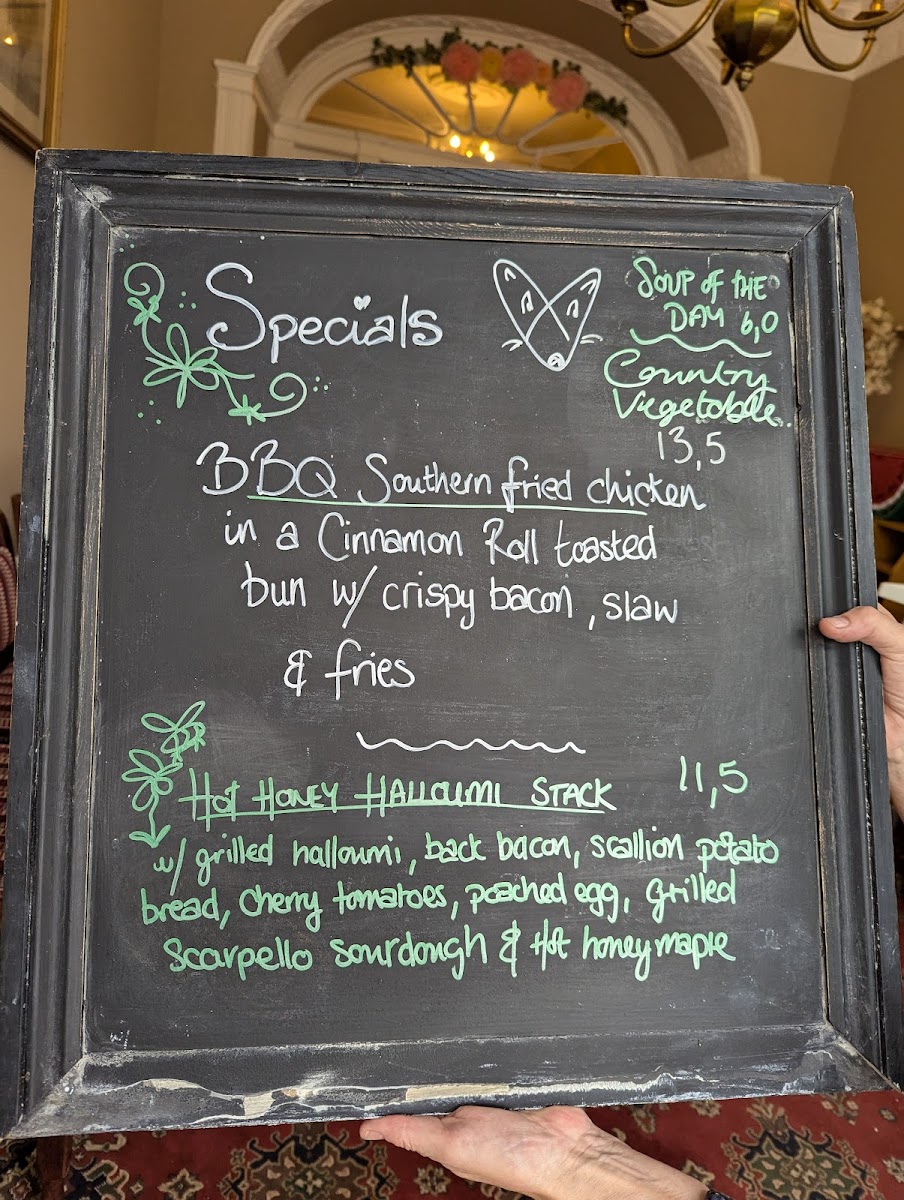 Specials
SOUP OF THE
DAY 6,0
Country
Vegetable
13,5
BBQ Southern fried chicken
in a Cinnamon Roll toasted
bun w/ crispy bacon, slaw
& fries
HOT HONEY HALLOUMI STACK 11,5
w/ grilled halloumi, back bacon, scallion potato
bread, Cherry tomatoes, poached egg, Grilled
Scarpello sourdough & Hot honey maple